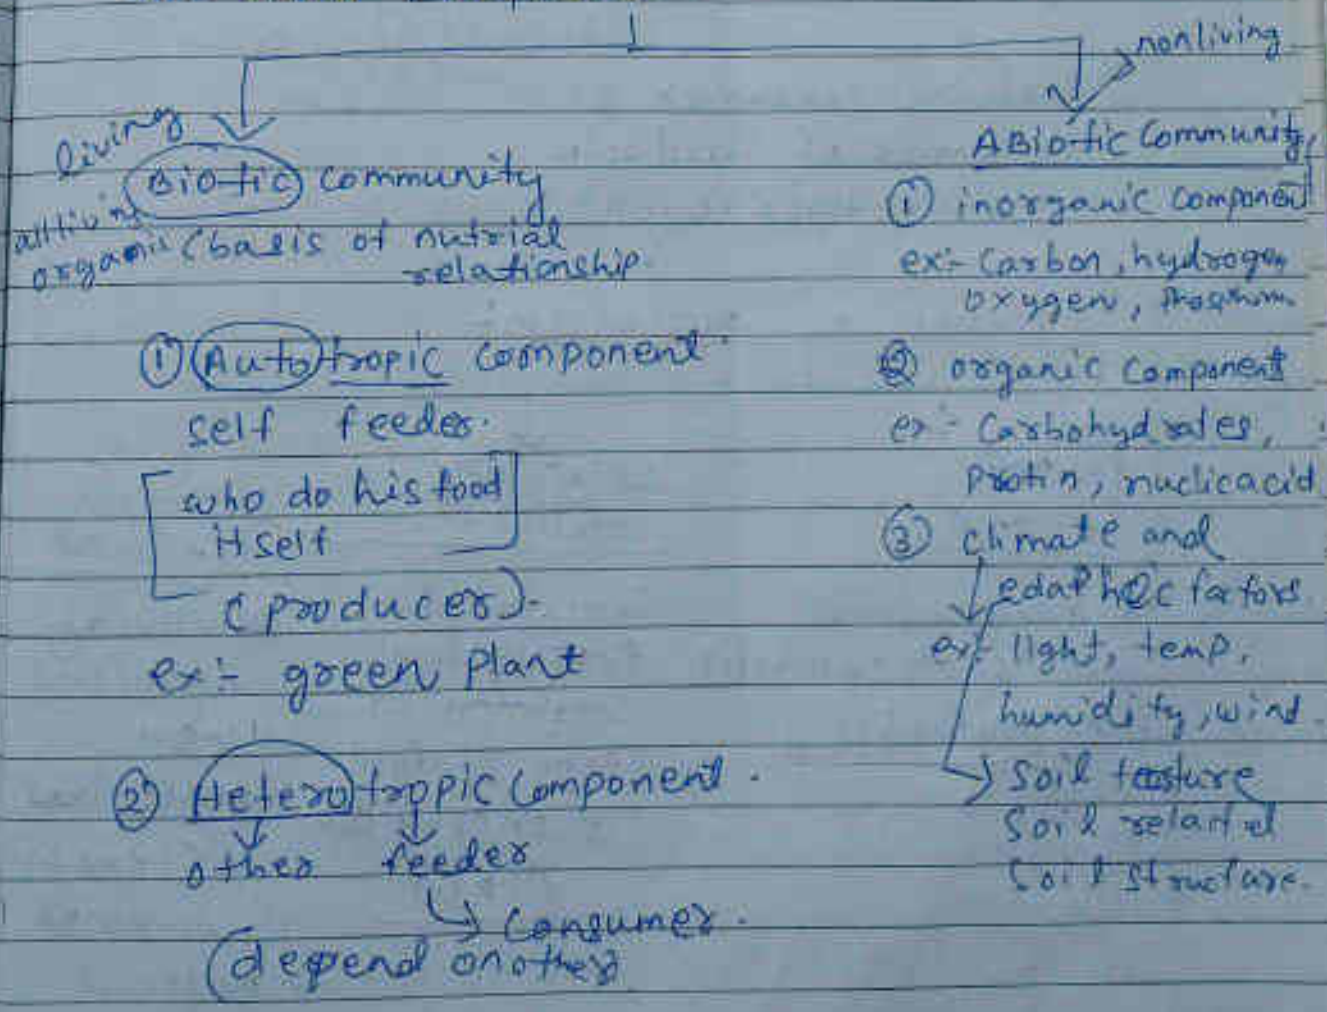 living
Biotic community
all living
organis (basis of nutrial
relationship.
① Autotropic component
self feeder.
who do his food
itself
(producer).
ex:- green Plant
② Heterotroppic Component.
other feeder
Consumer.
(depend on other)
nonliving
ABiotic Community
① inorganic component
ex:- Carbon, hydrogen
oxygen,
② organic Component
ex:- Carbohydrates,
Protin, nuclicacid
③ climate and
edaphic factors
ex:- light, temp,
humidity, wind.
Soil
Soil
Soil structure.